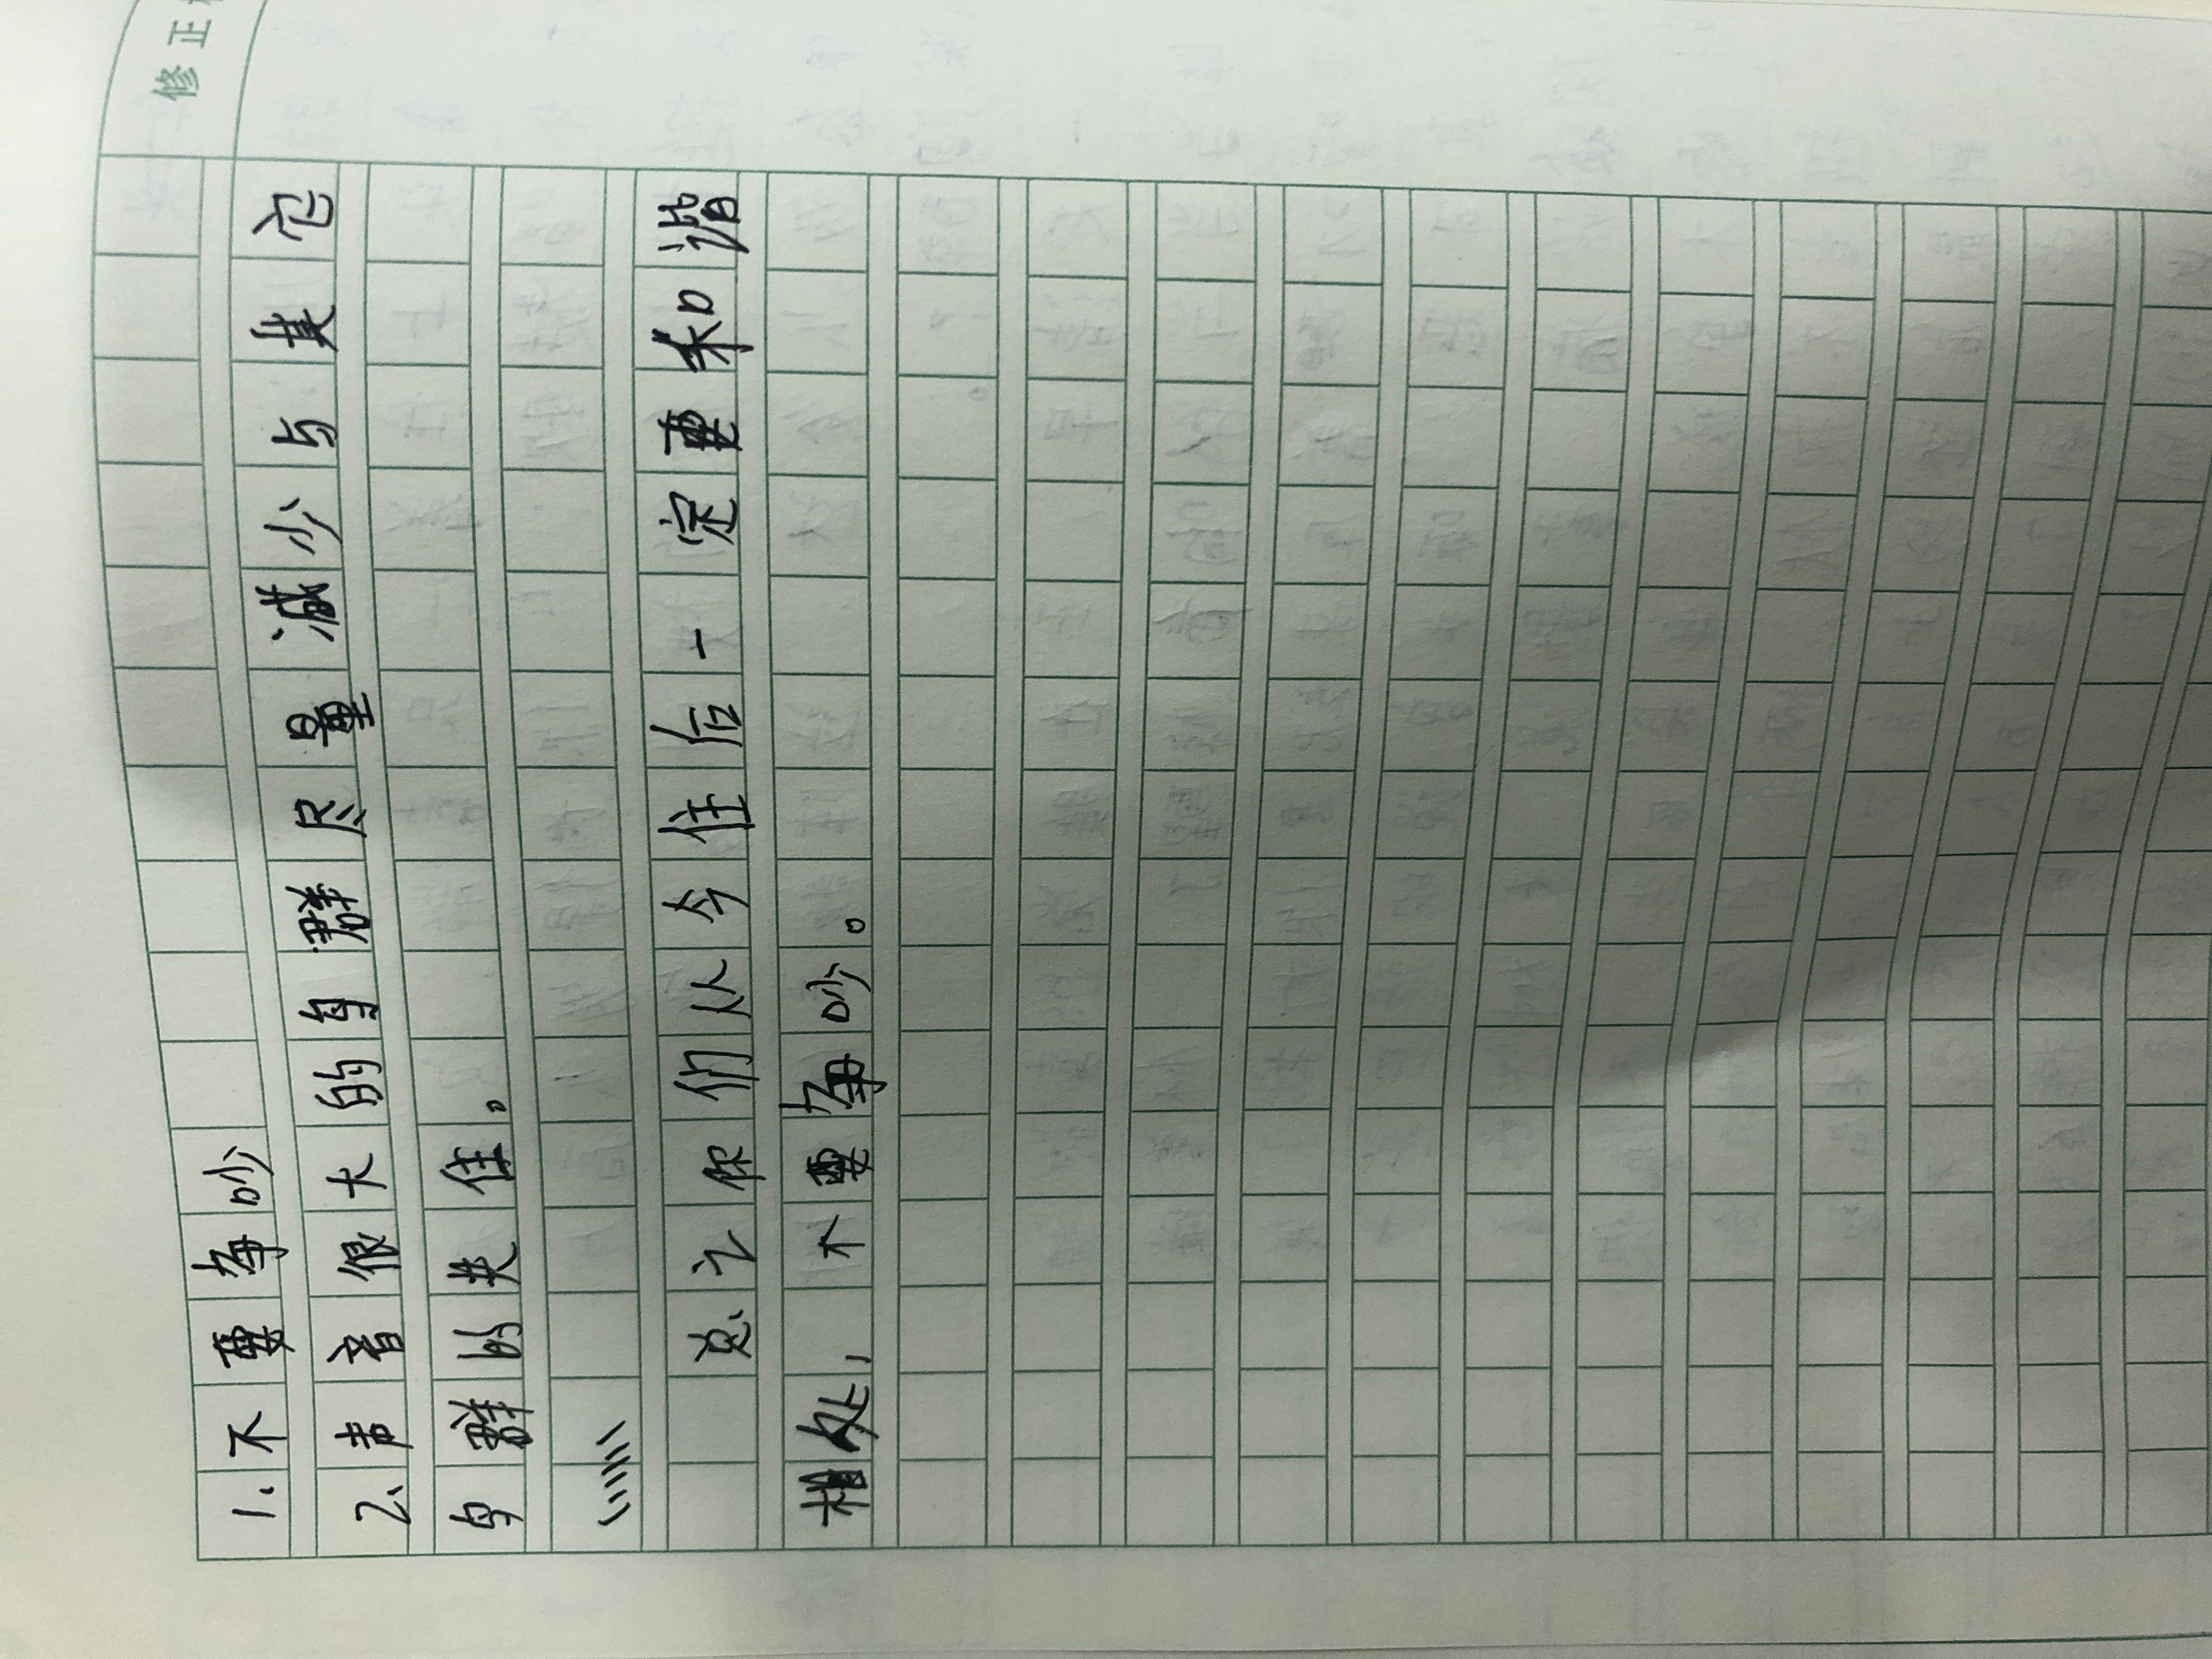 修正
1、不要争吵
2、声音很大的鸟群尽量减少与其它
鸟群的失住。
……
总之你们从今住后一定要和谐
相处，不要争吵。